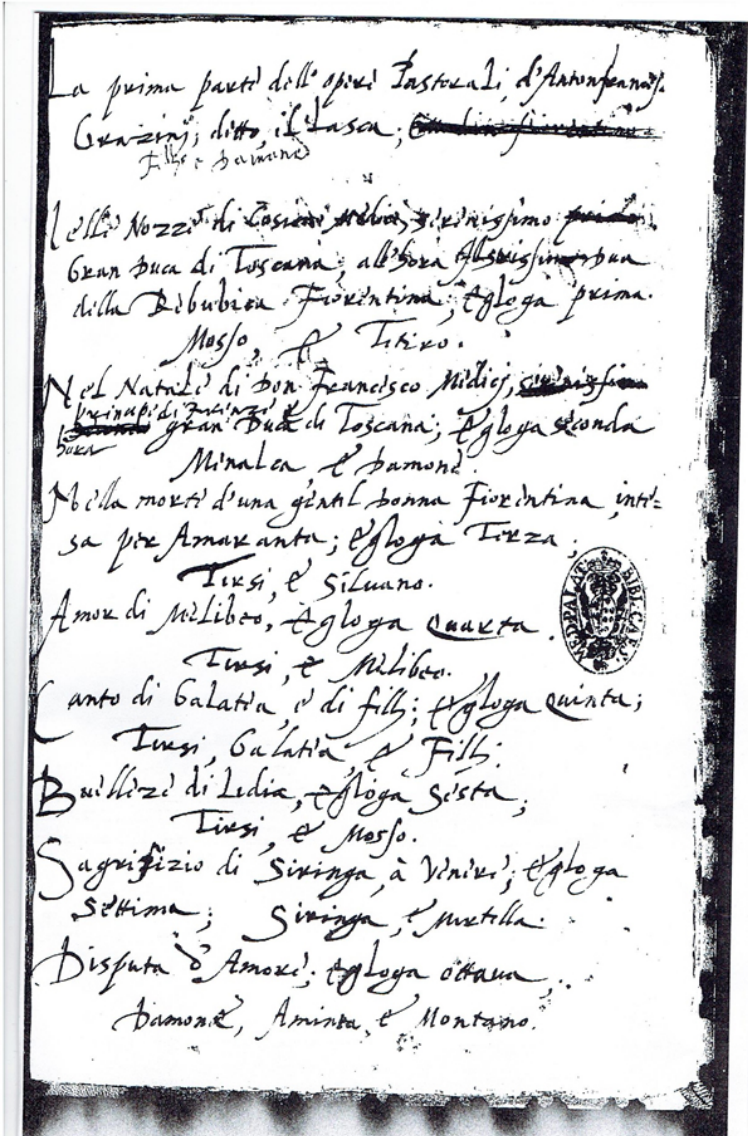 La prima parte dell'opere Pastorali, d'Antonfrances.
Grazini, ditto, il Lasca;
Filli e Damone
Nelle Nozze di Cosimo Medici, serenissimo
Gran Duca di Toscana, all'hora Duca
della Republica Fiorentina, Egloga prima.
Mosso, & Titiro.
Nel Natale di Don Francesco Medici,
Principe di Firenze e
hora gran Duca di Toscana; Egloga seconda
Minalca & Damone.
Nella morte d'una gentil Donna Fiorentina inte=
sa per Amaranta; Egloga Terza;
Tirsi, & Siluano.
Amor di Melibeo, Egloga Quarta.
Tirsi, & Melibeo.
Canto di Galatea, e di filli; Egloga Quinta;
Tirsi, Galatea, & Filli.
Bellezze di Lidia, Egloga Sesta,
Tirsi, & Mosso.
Sagrifizio di Siringa, à Venere; Egloga
Settima; Siringa, & Mirtilla.
Disputa d'Amore; Egloga ottaua,
Damone, Aminta, & Montano.
MED. PALAT. BIBL. CAES.